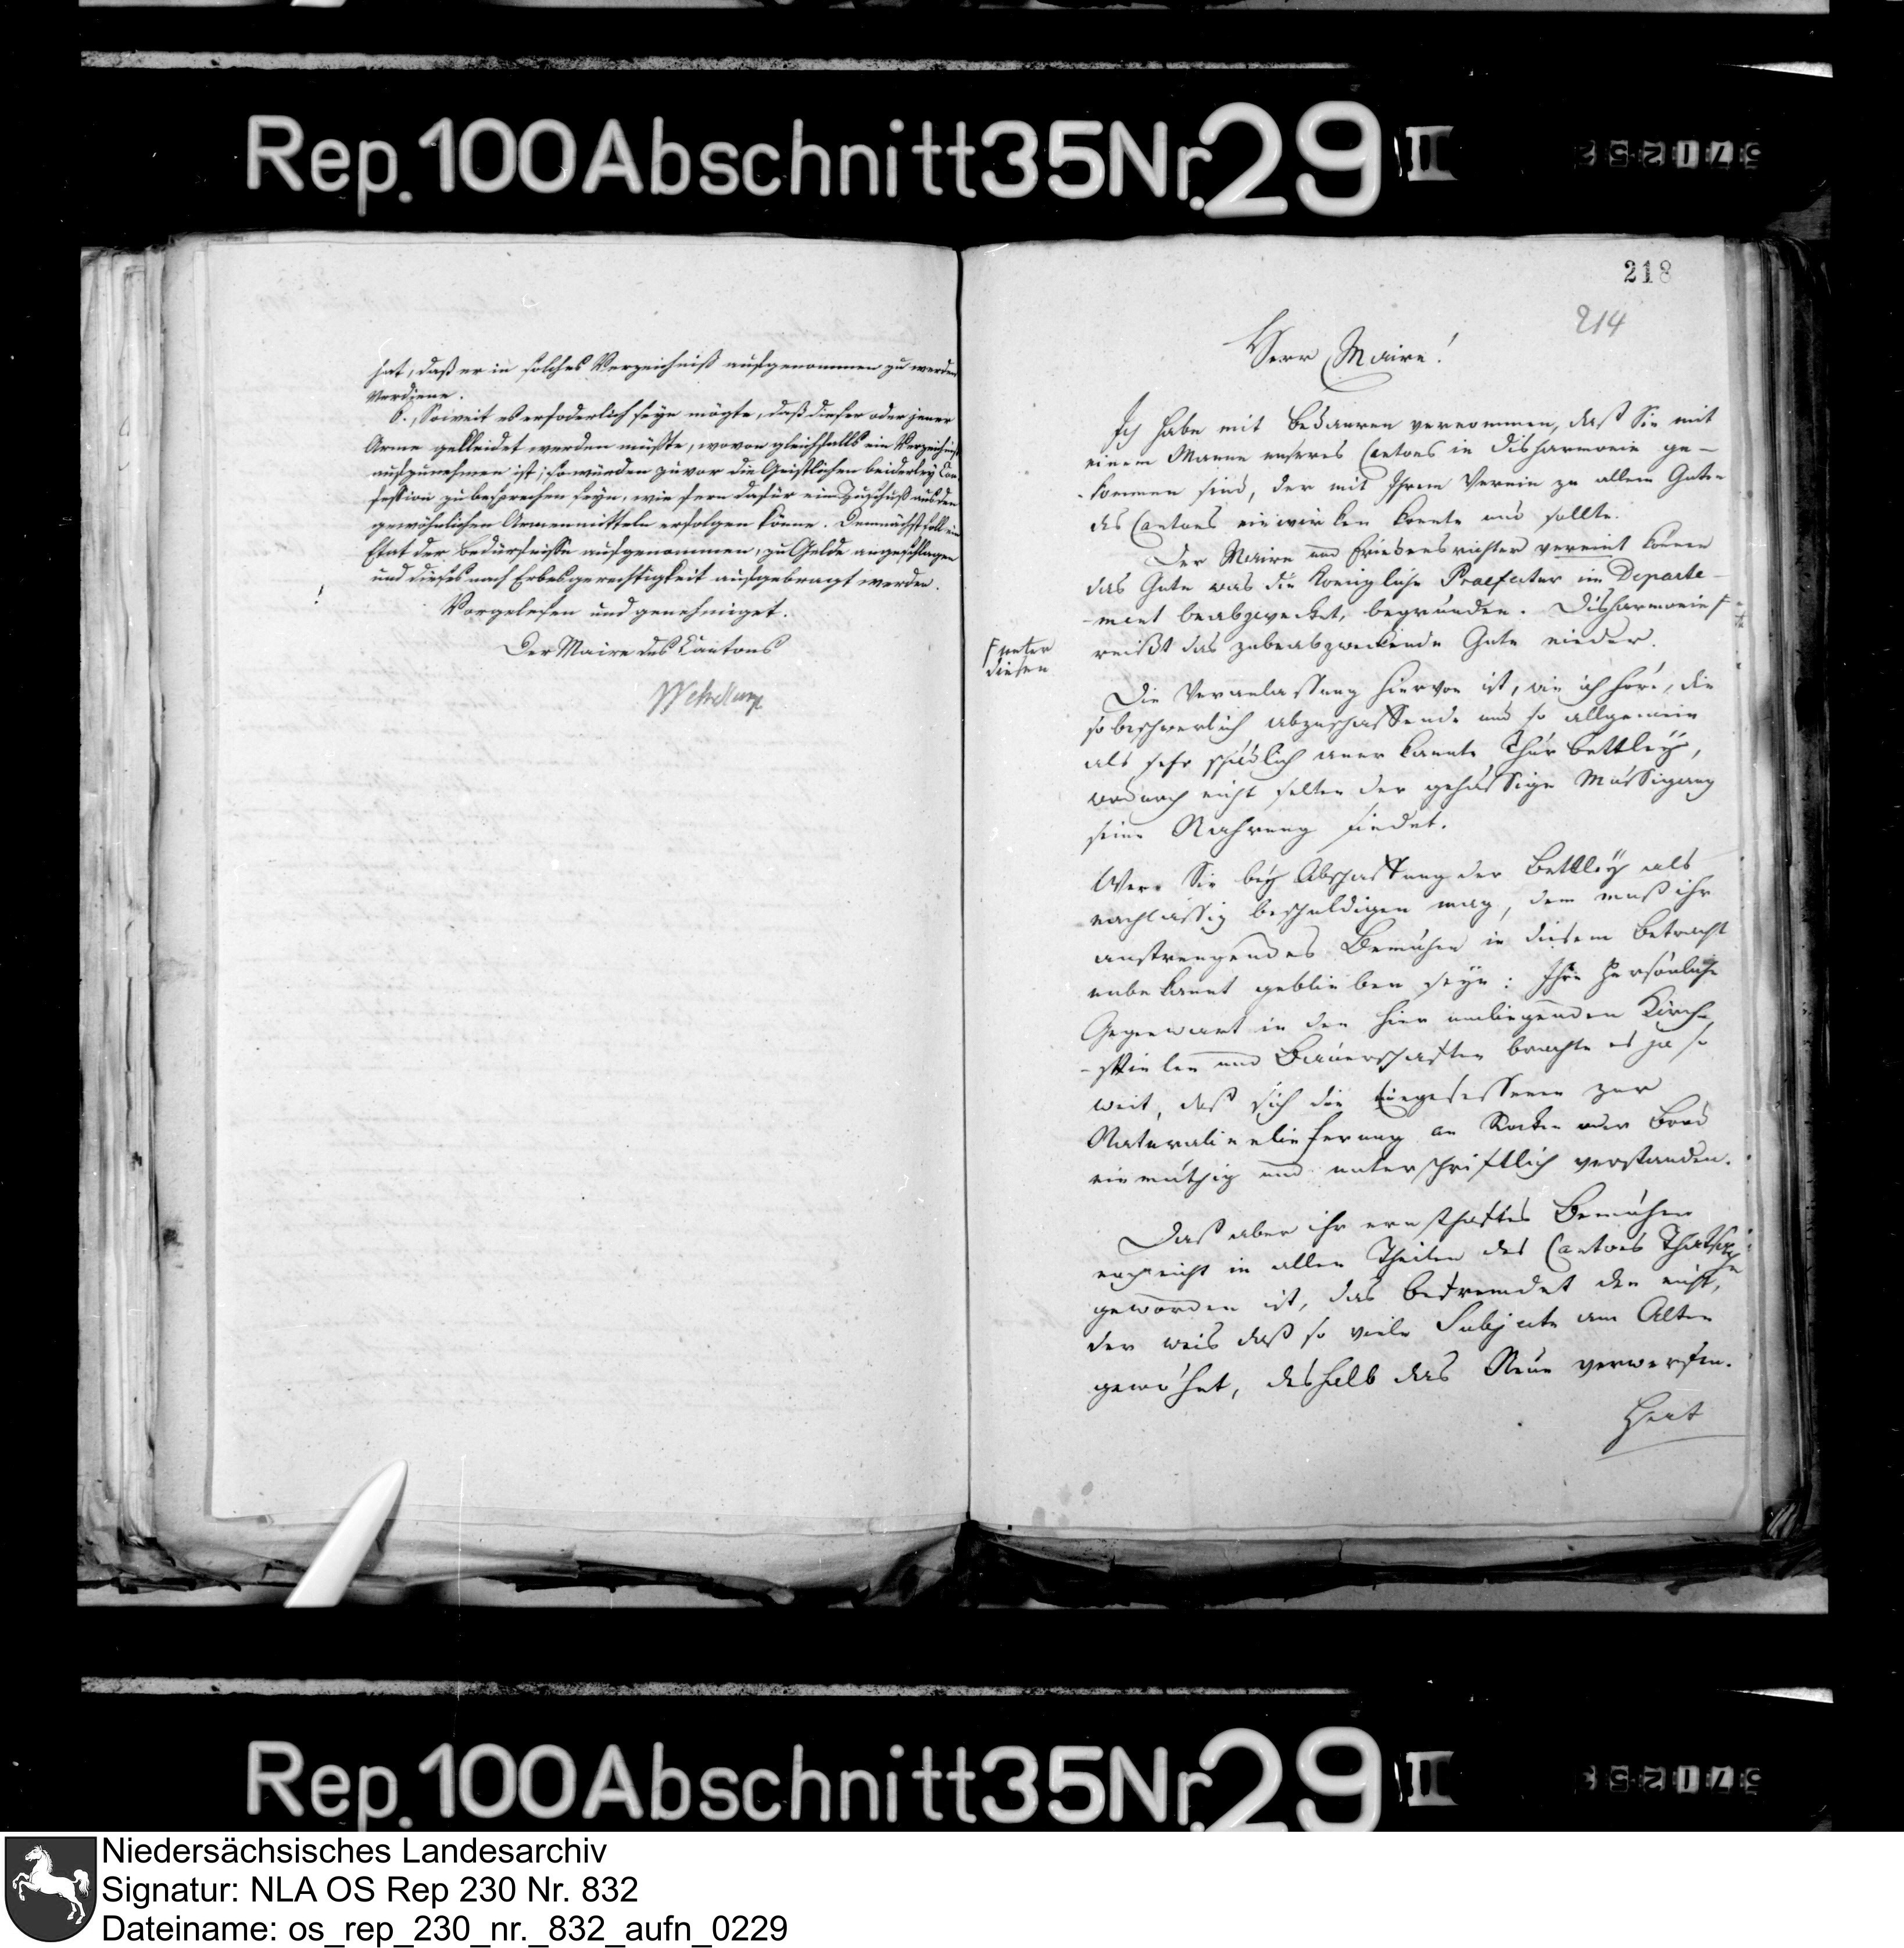 Rep. 100 Abschnitt 35 Nr. 29 II
57125
hat, daß er in solches Verzeichniß aufgenommen zu werden
verdiene.
6., Soweit es erfoderlich seyn mögte, daß dieser oder jener
Arme gekleidet werden müßte, wovon gleichfalls ein Verzeichniß
aufzunehmen ist; so würden zuvor die Geistlichen beiderley Con-
fession zu besprechen seyn, wie fern dafür ein Zuschuß aus den
gewöhnlichen Armenmitteln erfolgen könne. Demnächst soll ein
Etat der Bedürfnisse aufgenommen, zu Gelde angeschlagen
und dieses nach Erbesgerechtigkeit aufgebragt werden.
Vorgelesen und genehmiget.
Der Maire des Cantons
218
214
Herr Maire!
Ich habe mit Bedauren vernommen, daß Sie mit
einem Manne unseres Cantons in Disharmonie ge-
-kommen sind, der mit Ihrem Verein zu allem Guten
des Cantons einwirken konnte und sollte.
Der Maire und Friedensrichter vereint können
das Gute was die Königliche Praefectur im Departe-
-ment beabzwecket, begründen. Disharmonie F
F unter
diesen
reißt das zubeabzweckende Gute nieder.
Die Veranlassung hiervon ist, wie ich höre, die
so beschwerlich abzuschaffende und so allgemein
als sehr schädlich anerkannte Thür Betteley,
wodurch nicht selten der gehässige Müssigang
seine Nahrung findet.
Wer Sie bey Abschaffung der Betteley als
nachlässig beschuldigen mag, dem muß ihr
anstrengendes Bemühen in diesem Betracht
unbekannt geblieben seyn: Ihre Persönliche
Gegenwart in den hier umliegenden Kirch-
-spielen und Bauerschaften brachte es ja so
weit, daß sich die Eingesessenen zur
Naturalienlieferung an Rocken oder Brod
einmüthig und unterschriftlich verstanden.
Daß aber ihr ernsthaftes Bemühen
noch nicht in allen Theilen des Cantons Thatsache
geworden ist, das befremdet den nicht,
der weis daß so viele Subjecte am Alten
gewöhnt, deshalb das Neue verwerfen.
Rep. 100 Abschnitt 35 Nr. 29 II
57125
Niedersächsisches Landesarchiv
Signatur: NLA OS Rep 230 Nr. 832
Dateiname: os_rep_230_nr._832_aufn_0229